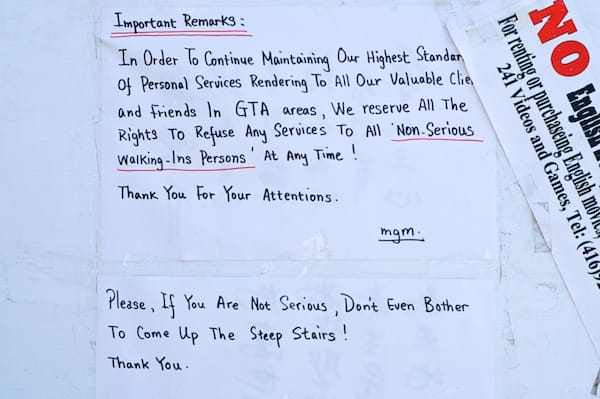 Important Remarks :
In Order To Continue Maintaining Our Highest Standar
Of Personal Services Rendering To All Our Valuable Clie
and friends In GTA areas, We reserve All The
Rights To Refuse Any Services To All 'Non-Serious
Walking-Ins Persons' At Any Time !
Thank You For Your Attentions.
mgm.
Please, If You Are Not Serious, Don't Even Bother
To Come Up The Steep Stairs !
Thank You.
NO English
For renting or purchaseing English movies,
241 Videos and Games, Tel: (416)9